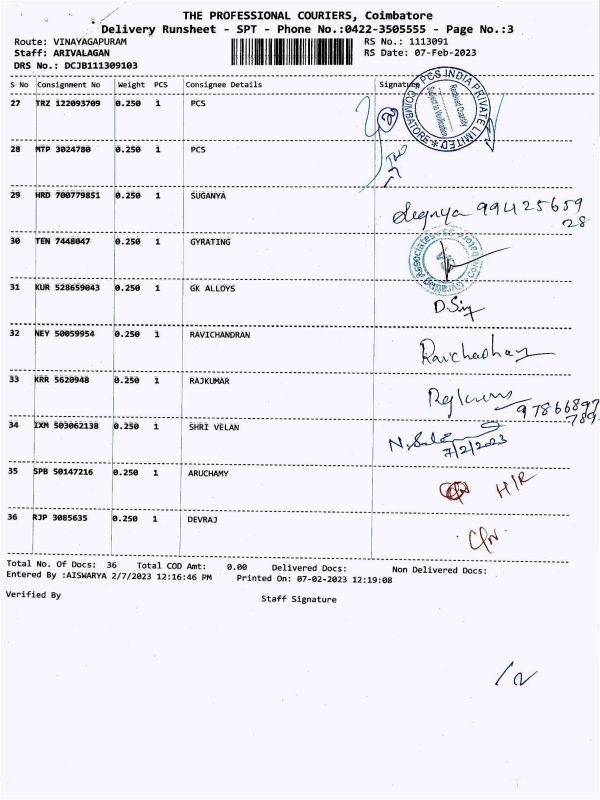 THE PROFESSIONAL COURIERS, Coimbatore
Delivery Runsheet - SPT - Phone No.:0422-3505555 - Page No.:3
Route: VINAYAGAPURAM RS No.: 1113091
Staff: ARIVALAGAN RS Date: 07-Feb-2023
DRS No.: DCJB111309103
S No Consignment No Weight PCS Consignee Details Signature
27 TRZ 122093709 0.250 1 PCS
PCS INDIA PRIVATE LIMITED * COIMBATORE *
Received Quantity
Subject to Verification
28 MTP 3024780 0.250 1 PCS
29 HRD 700779851 0.250 1 SUGANYA
9942565928
30 TEN 7448047 0.250 1 GYRATING
31 KUR 528659043 0.250 1 GK ALLOYS
32 NEY 50059954 0.250 1 RAVICHANDRAN
33 KRR 5620948 0.250 1 RAJKUMAR
97866897
789
34 IXM 503062138 0.250 1 SHRI VELAN
7/2/2023
35 SPB 50147216 0.250 1 ARUCHAMY
H/R
36 RJP 3085635 0.250 1 DEVRAJ
Total No. Of Docs: 36 Total COD Amt: 0.00 Delivered Docs: Non Delivered Docs:
Entered By :AISWARYA 2/7/2023 12:16:46 PM Printed On: 07-02-2023 12:19:08
Verified By Staff Signature